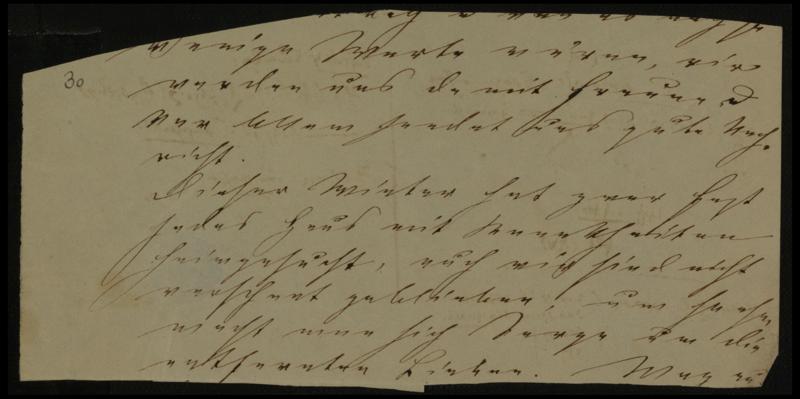 30
wenige Worte wären, wir
werden uns damit freuen
Vor Allem sendet uns gute Nach-
richt.
Dieser Winter hat zwar fast
jedes Haus mit Krankheiten
heimgesucht, auch wir sind nicht
verschont geblieben, um so
macht man sich Sorge um die
entfernten Lieben.